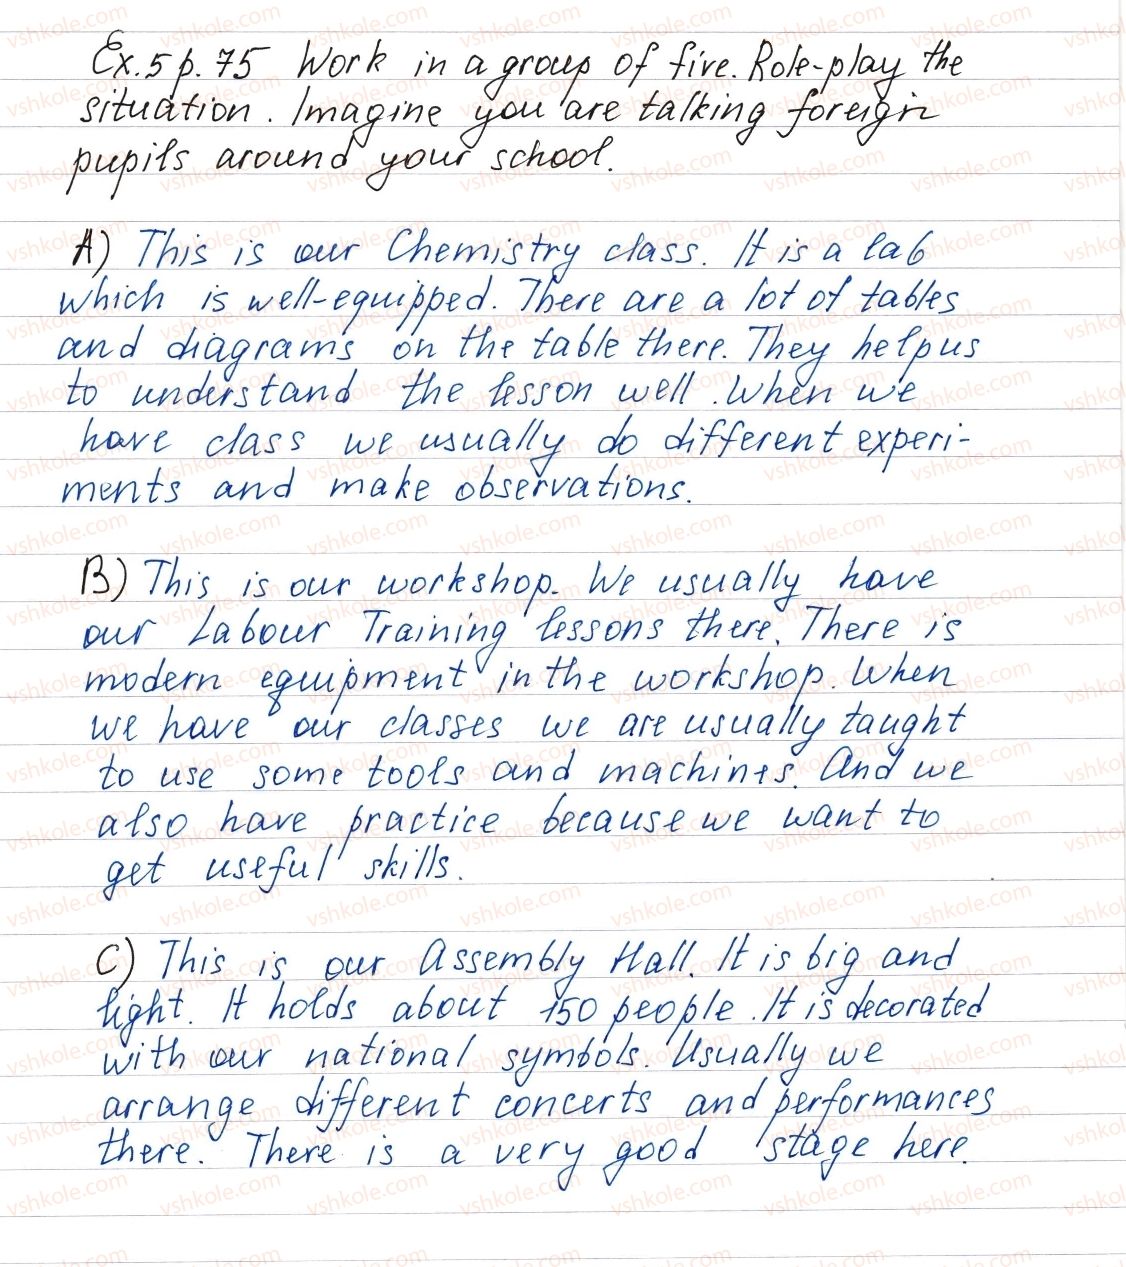 Ex.5 p.75 Work in a group of five. Role-play the
situation. Imagine you are talking foreign
pupils around your school.
A) This is our Chemistry class. It is a lab
which is well-equipped. There are a lot of tables
and diagrams on the table there. They help us
to understand the lesson well. When we
have class we usually do different experi-
ments and make observations.
B) This is our workshop. We usually have
our Labour Training lessons there. There is
modern equipment in the workshop. When
we have our classes we are usually taught
to use some tools and machines. And we
also have practice because we want to
get useful skills.
C) This is our Assembly Hall. It is big and
light. It holds about 150 people. It is decorated
with our national symbols. Usually we
arrange different concerts and performances
there. There is a very good stage here.
vshkole.com